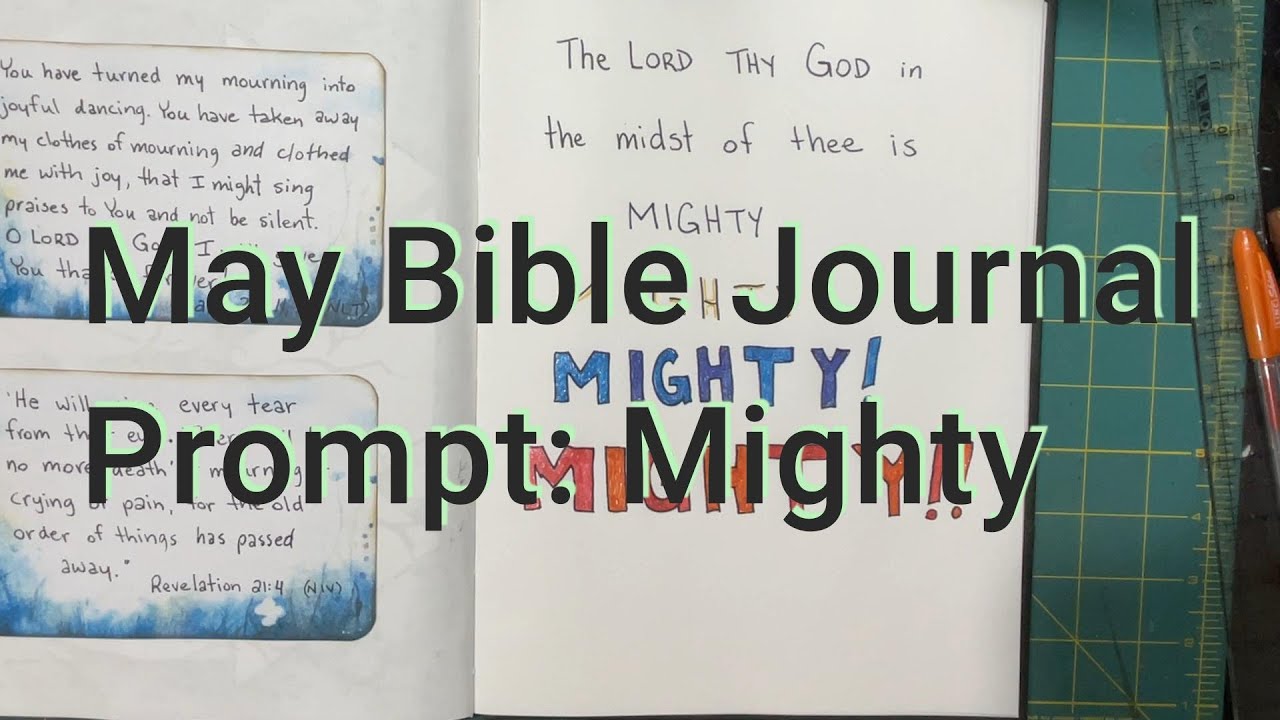 You have turned my mourning into
joyful dancing. You have taken away
my clothes of mourning and clothed
me with joy, that I might sing
praises to You and not be silent.
O LORD
You
NLT)
'He will every tear
from
no more death'
crying or pain, for the old
order of things has passed
away."
Revelation 21:4 (NIV)
The LORD THY GOD in
the midst of thee is
MIGHTY
MIGHTY!
MIGHTY!!
May Bible Journal
Prompt: Mighty